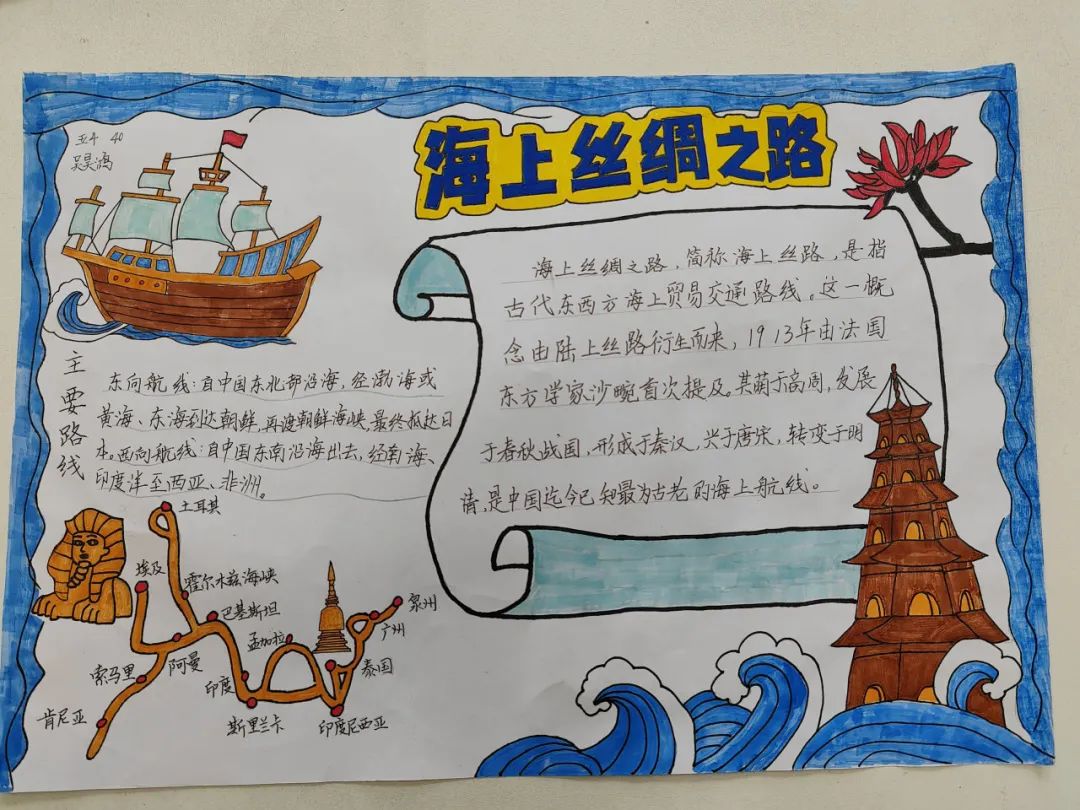 海上丝绸之路
五4 40
吴昊鸿
海上丝绸之路，简称海上丝路，是指
古代东西方海上贸易交通路线。这一概
念由陆上丝路衍生而来，1913年由法国
东方学家沙畹首次提及。其萌于商周，发展
于春秋战国，形成于秦汉，兴于唐宋，转变于明
清，是中国迄今已知最为古老的海上航线。
主要路线
东向航线：自中国东北部沿海，经渤海或
黄海、东海到达朝鲜，再渡朝鲜海峡，最终抵达日
本。西向航线：自中国东南沿海出去，经南海、
印度洋至西亚、非洲。
土耳其
埃及
霍尔木兹海峡
巴基斯坦
孟加拉
泉州
广州
索马里
阿曼
印度
泰国
肯尼亚
斯里兰卡
印度尼西亚